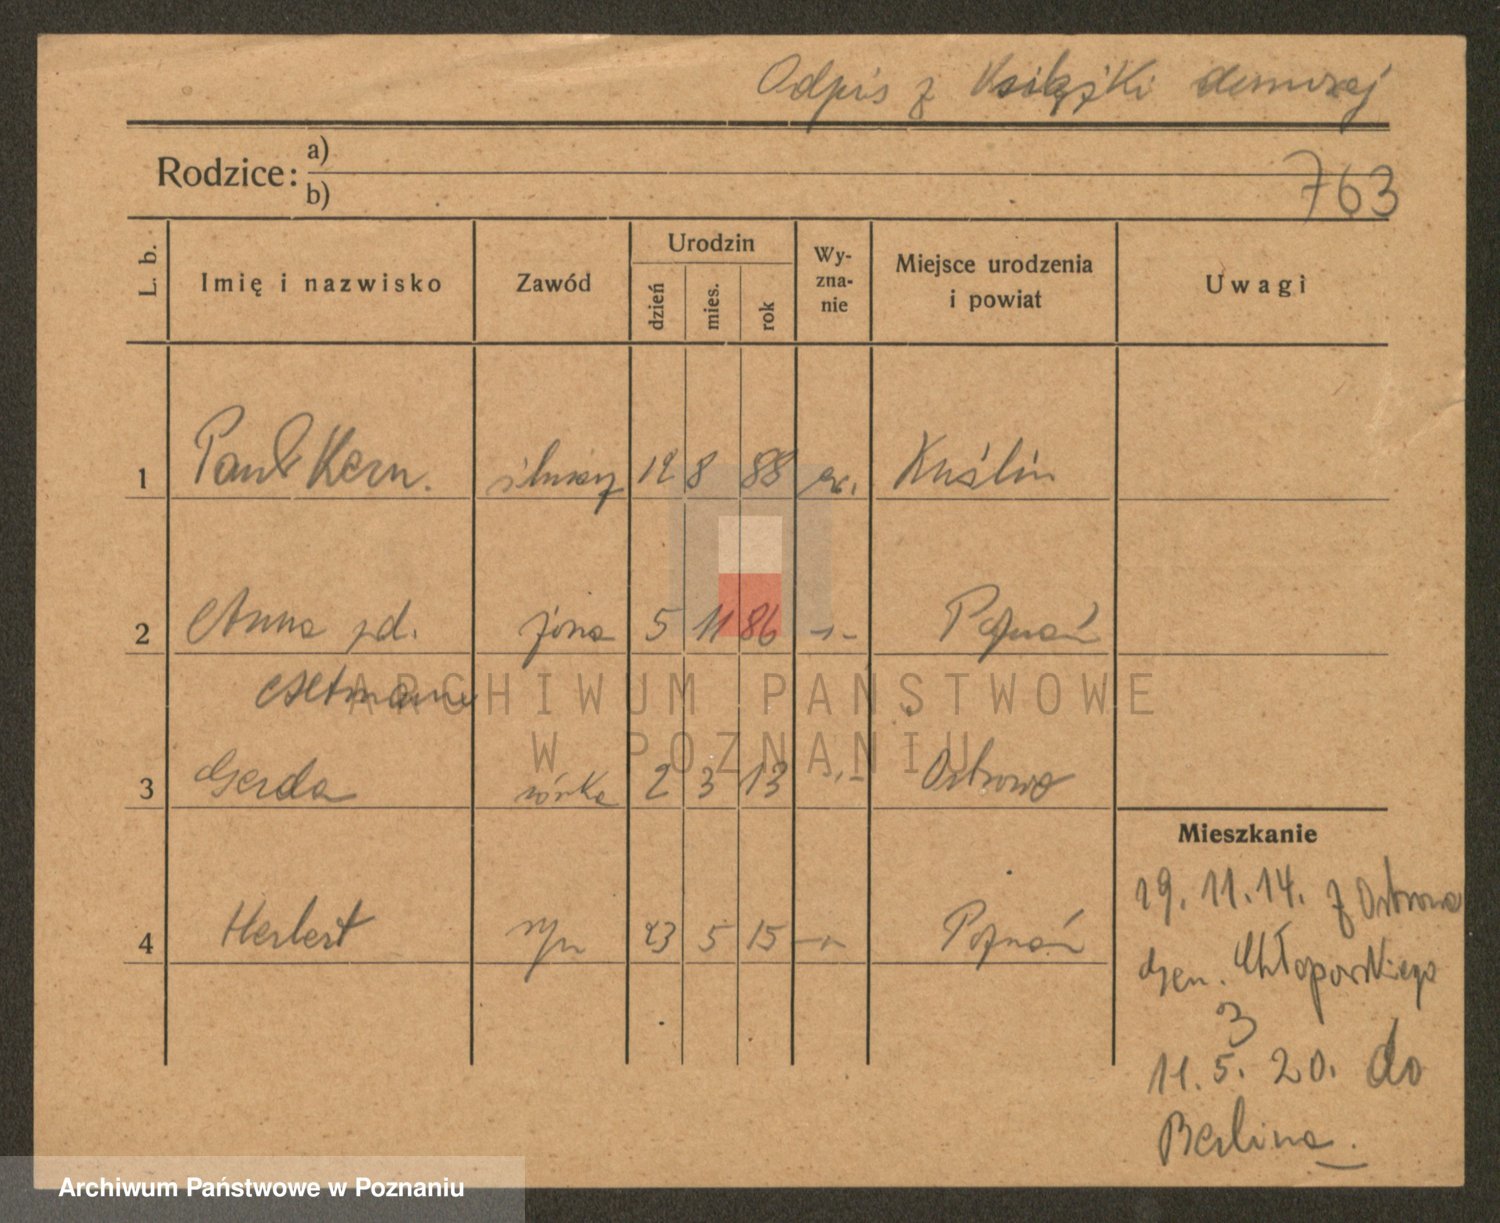 Odpis z Książki domowej
Rodzice: a)
b)
763
L. b. Imię i nazwisko Zawód Urodzin dzień mies. rok Wy-zna-nie Miejsce urodzenia i powiat Uwagi
1 Paul Kern. ślusarz 12 8 88 ew. Kuślin
2 Anna zd. żona 5 11 86 -"- Poznań
3 Gerda córka 2 3 13 -"- Ostrowo
Mieszkanie
4 Herbert syn 23 5 15 -"- Poznań
29. 11. 14. z Ostrowa
Gen. Chłapowskiego
3
11. 5. 20. do
Berlina.
ARCHIWUM PAŃSTWOWE
W POZNANIU
Archiwum Państwowe w Poznaniu